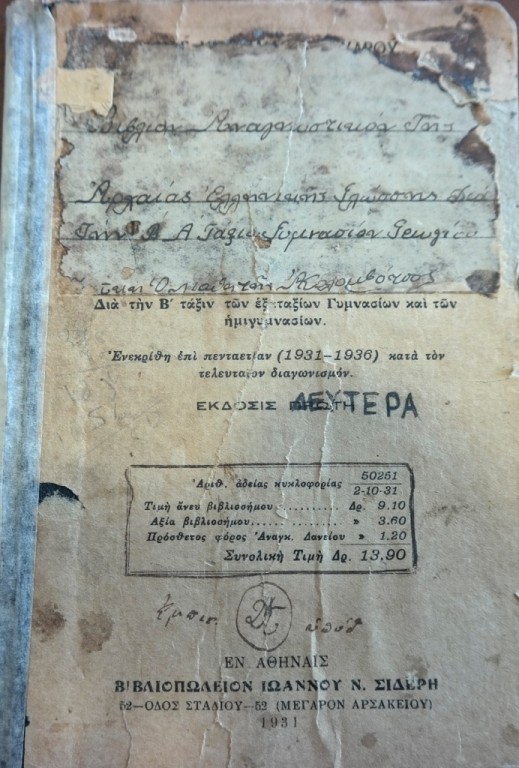 Βιβλίον Αναγνωστικόν Της
Αρχαίας Ελληνικής Γλώσσης διά
Την Β Α Ταξιν Γυμνασίου Γεωργίου
Ο Μαθητής
Διὰ τὴν Β΄ τάξιν τῶν ἑξαταξίων Γυμνασίων καὶ τῶν
ἡμιγυμνασίων.
Ἐνεκρίθη ἐπὶ πενταετίαν (1931-1936) κατὰ τὸν
τελευταῖον διαγωνισμόν.
ΕΚΔΟΣΙΣ ΠΡΩΤΗ ΔΕΥΤΕΡΑ
Ἀριθ. ἀδείας κυκλοφορίας 50251
2-10-31
Τιμὴ ἄνευ βιβλιοσήμου .......... Δρ. 9.10
Ἀξία βιβλιοσήμου...... ........ » 3.60
Πρόσθετος φόρος Ἀναγκ. Δανείου » 1.20
Συνολικὴ Τιμὴ Δρ. 13,90
ΕΝ ΑΘΗΝΑΙΣ
ΒΙΒΛΙΟΠΩΛΕΙΟΝ ΙΩΑΝΝΟΥ Ν. ΣΙΔΕΡΗ
52—ΟΔΟΣ ΣΤΑΔΙΟΥ—52 (ΜΕΓΑΡΟΝ ΑΡΣΑΚΕΙΟΥ)
1931